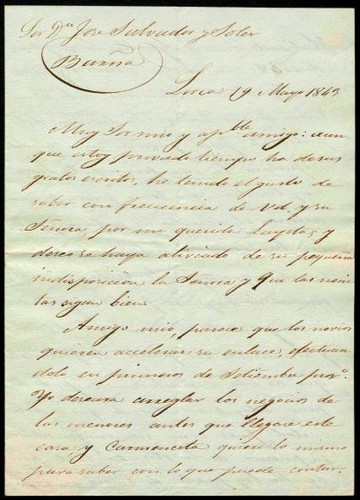 Sor Dn José Salvador y Soler
Barna
Lorca 19 Mayo 1843
Muy Sor mio y apble amigo: aun
que estoy privado tiempo ha de sus
gratos escritos, he tenido el gusto de
saber con frecuencia de Vd. y su
Señora, por mi querido y
deseo se haya aliviado de su pequeña
indisposicion la Señora y que las
las sigan bien.
Amigo mio, parece que los novios
quieren accelerar su enlace, efectuan
dolo en primeros de Setiembre proxo.
Yo deseara arreglar los negocios de
las menores antes que llegare este
caso y Carmencita quien lo mismo
para saber con lo que puede contar.